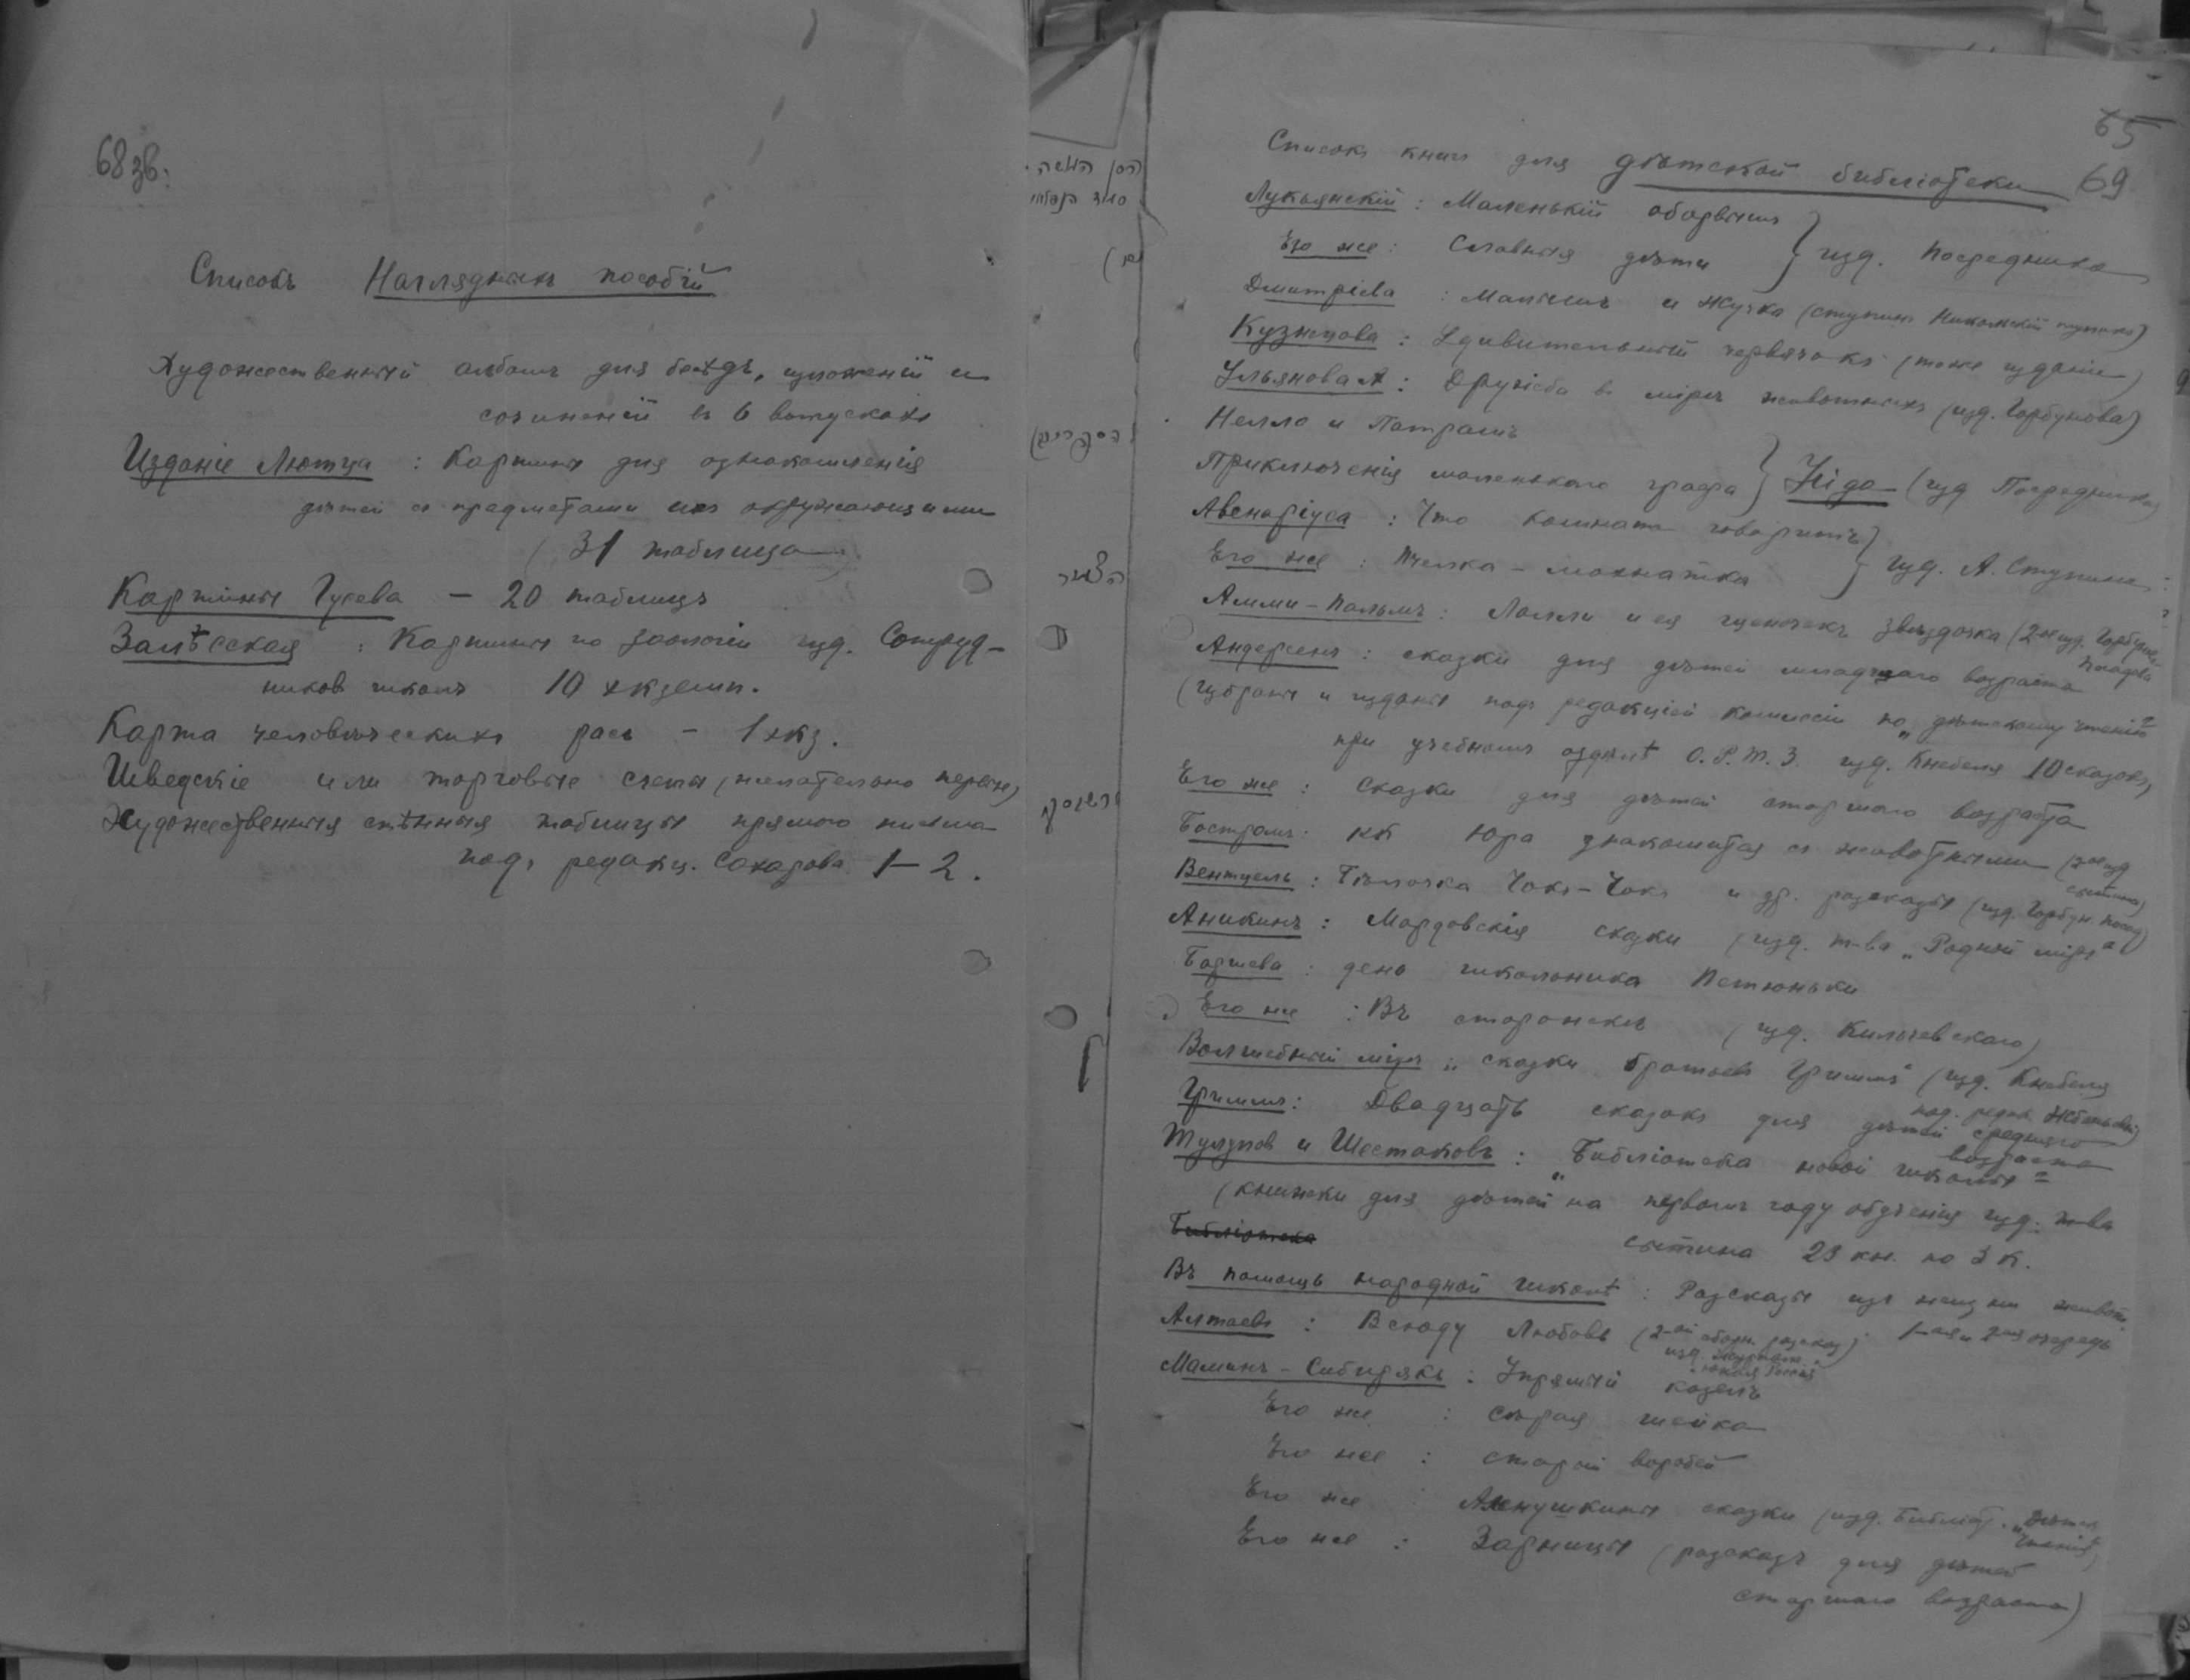 68 зв.
Списокъ Наглядныхъ пособій
Художественный альбомъ для бесѣдъ, изложеній и
сочиненій въ 6 выпускахъ
Изданіе Лютца : Картины для ознакомленія
дѣтей съ предметами ихъ окружающими
(31 таблица)
Картины Гусева — 20 таблицъ
Залѣсская : Картины по зоологіи изд. Сотруд-
никовъ школъ 10 экземп.
Карта человѣческихъ расъ - 1 экз.
Шведскіе или торговые счеты (желательно первые)
Художественныя стѣнныя таблицы прямого письма
подъ редакц. Сахарова 1-2.
65
69
Списокъ книгъ для дѣтской библіотеки
Лукьянскій : Маленькій оборвышъ
Его же : Славныя дѣти } изд. Посредника
Дмитріева : Малышъ и Жучка (Ступинъ
Кузнецова : Удивительный червячокъ (тоже изданіе)
Ульянова А : Дружба въ мірѣ животныхъ (изд. Горбунова)
Нелло и Патрашъ
Приключенія маленькаго графа } Уйда - (изд Посредника)
Авенаріуса : Что комната говоритъ
Его же : Пчелка - мохнатка } изд. А. Ступина
Алми - Пальмъ : Лолли и ея щеночекъ Звѣздочка (2ое изд. Горбунова Посадова
Андерсенъ : сказки для дѣтей младшаго возраста
(избраны и изданы подъ редакціей комиссіи по „дѣтскому чтенію"
при учебномъ отдѣлѣ О.Р.Т.З. изд. Кнебеля 10 сказокъ)
Его же : Сказки для дѣтей старшаго возраста
Бостромъ : Юра знакомится съ животными (2ое изд Сытина)
Вентцель : Тѣлочка Чокъ-Чокъ и др. разсказы (изд. Горбун. Посад)
Аникинъ : Мордовскія сказки (изд. т-ва „Родной міръ"
Боршева : день школьника Петюньки
Его же : Въ сторонекъ (изд. Кильчевскаго)
Волшебный міръ : сказки братьевъ Гриммъ (изд. Кнебеля
под. редак.
Гриммъ : Двадцать сказокъ для дѣтей средняго
возраста
Тулуповъ и Шестаковъ : „Библіотека новой школы"
(книжки для дѣтей на первомъ году обученія изд. т-ва
Сытина 23 кн. по 3 к.
Библіотека
Въ помощь народной школѣ : Разсказы изъ жизни живот.
1-ая и 2-ая очередь
Алтаевъ : Всюду Любовь (2-ой сборн. разсказ)
изд. журнала
„Юная Россія"
Маминъ - Сибирякъ : Упрямый козелъ
Его же : Сѣрая шейка
Его же : старый воробей
Его же : Аленушкины сказки (изд. Библіот. „Дѣтск. Чтенія")
Его же : Зарницы (разсказъ для дѣтей
старшаго возраста)